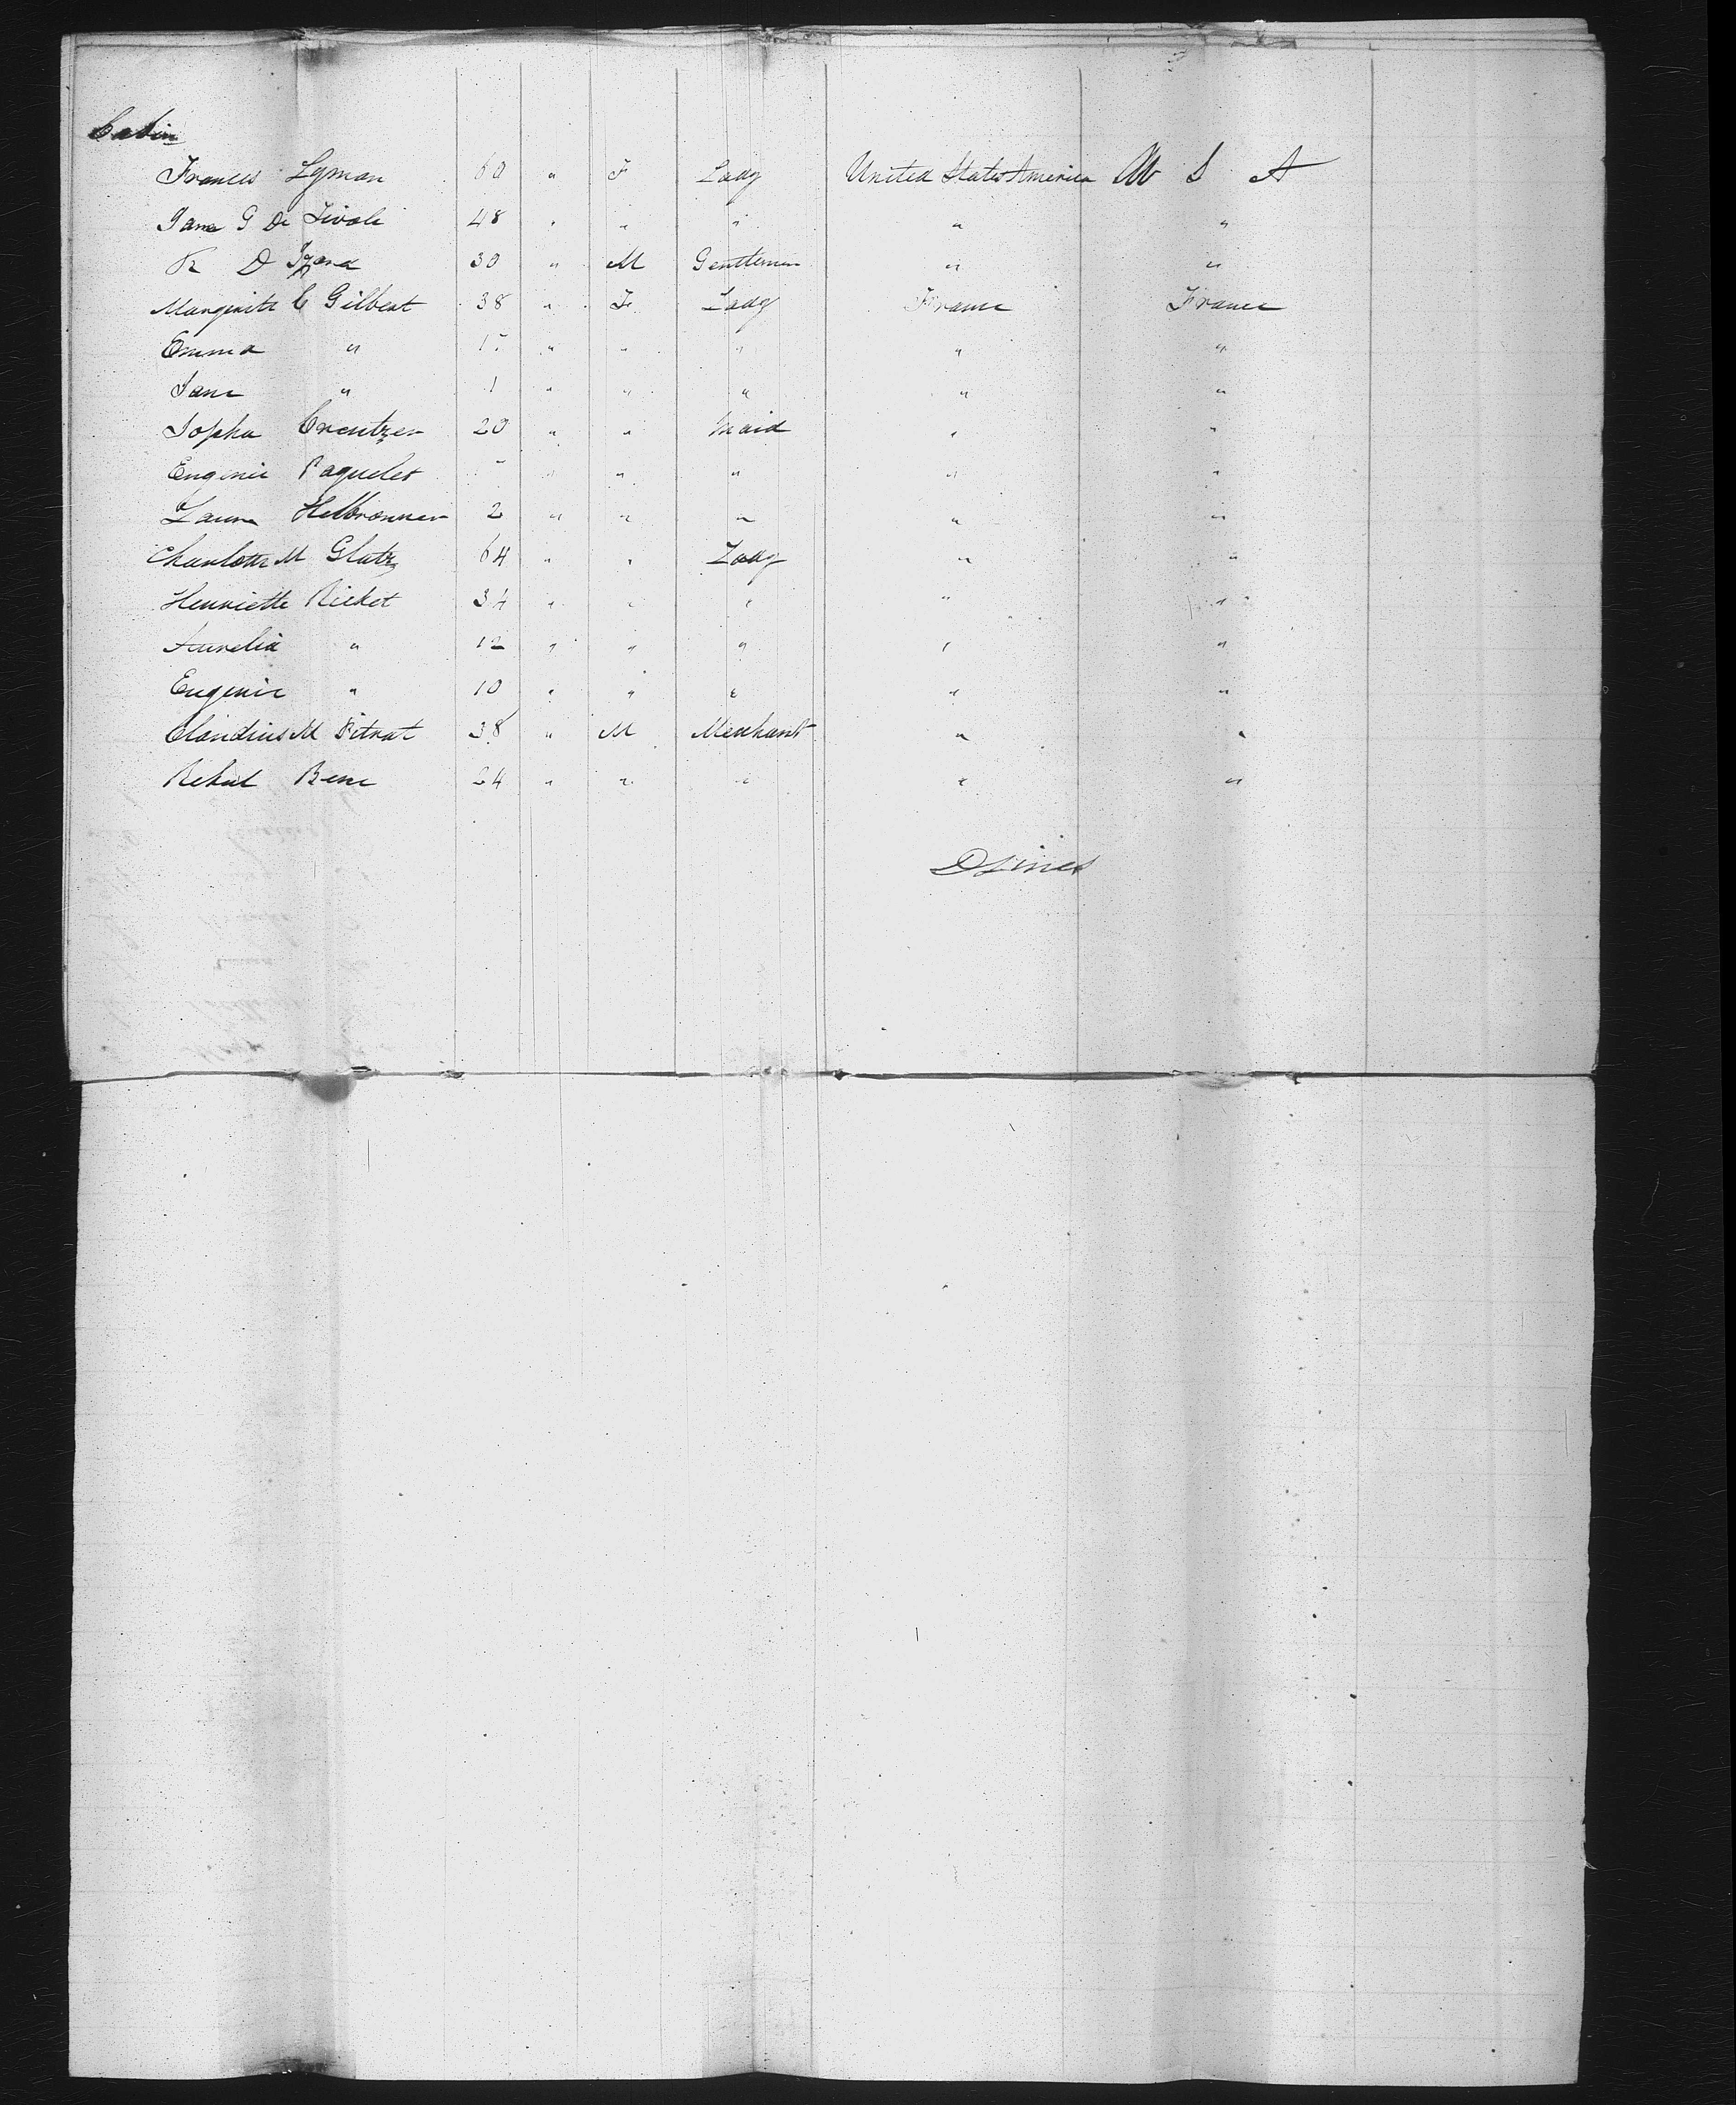 Cabin
Frances Lyman 60 " F Lady United States America U S A
Jane G De Tivoli 48 " " " " "
R D Izard 30 " M Gentleman " "
Marguerite C Gilbert 38 " F Lady France France
Emma " " " " " "
Jane " 1 " " " " "
Sopha Creutzer 20 " " Maid " "
Eugenie Paquelet " " " " "
Laura Helbronner 2 " " " " "
Charlotte M Glatz 64 " " Lady " "
Henriette Ricket 34 " " " " "
Aurelia " 12 " " " " "
Eugenie " 10 " " " " "
Claudius M Pitrat 38 " M Merchant " "
Bene 24 " " " " "